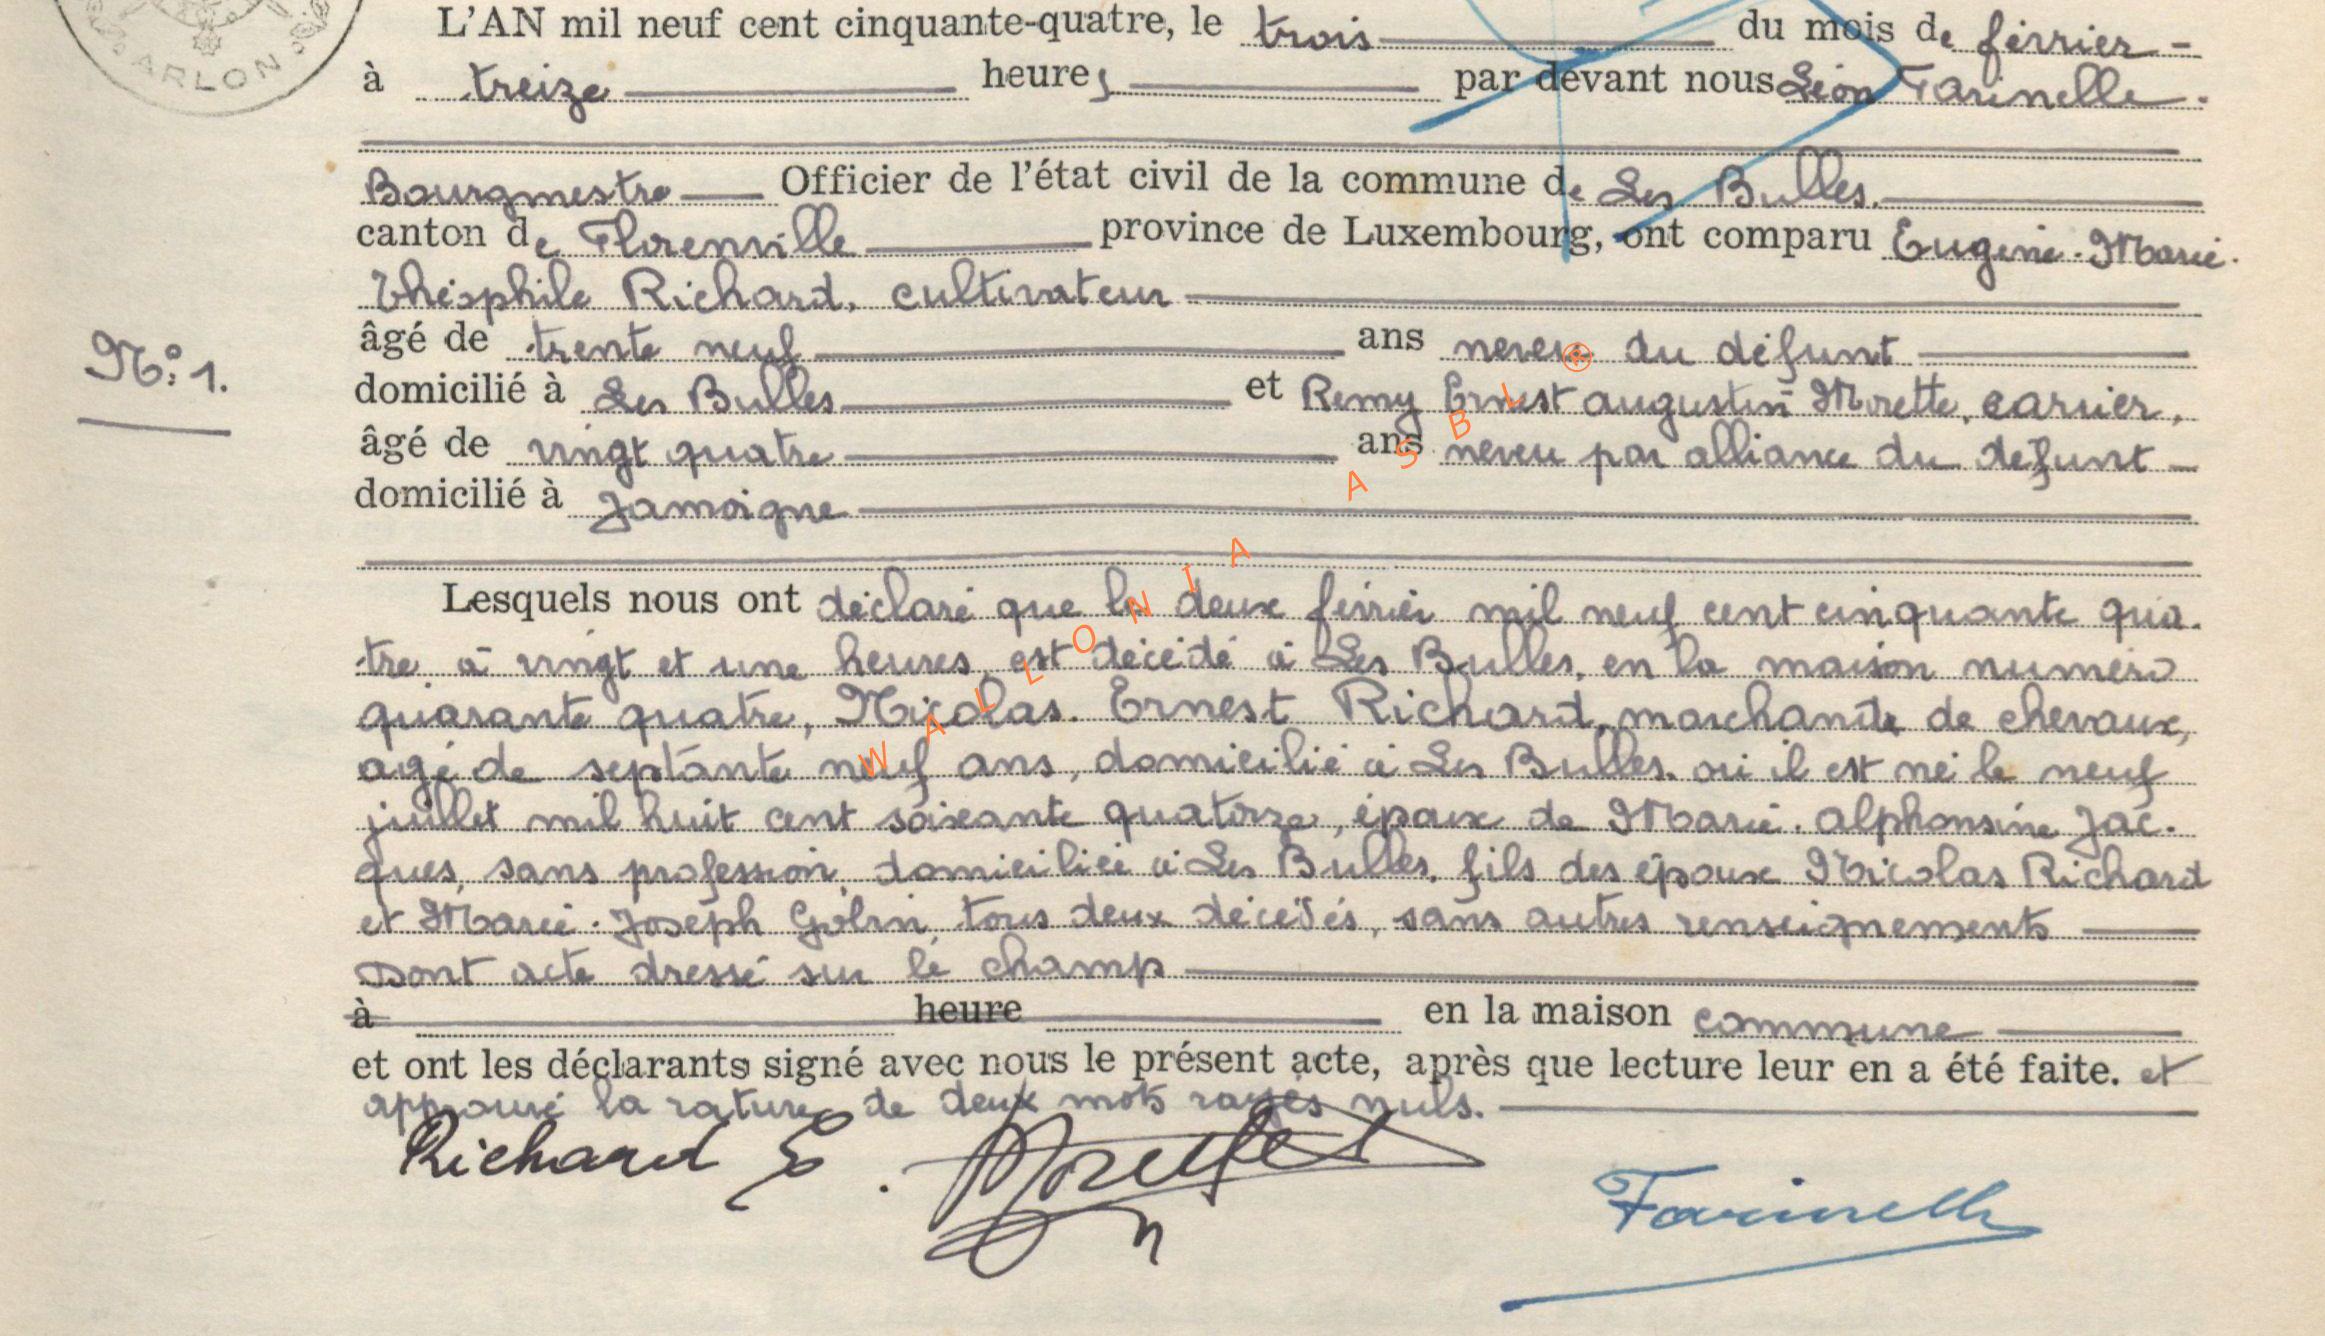 ARLON
L'AN mil neuf cent cinquante-quatre, le trois du mois de février -
à treize heures par devant nous Léon Farinelle.
Bourgmestre Officier de l'état civil de la commune de Les Bulles.
canton de Florenville province de Luxembourg, ont comparu Eugène-Marie-
Théophile Richard, cultivateur
âgé de trente neuf ans neveu du défunt
N° 1. domicilié à Les Bulles et Remy Ernest Augustin Morette, carrier,
âgé de vingt quatre ans neveu par alliance du défunt
domicilié à Jamoigne
Lesquels nous ont déclaré que le deux février mil neuf cent cinquante qua-
tre à vingt et une heures, est décédé à Les Bulles, en la maison numéro
quarante quatre, Nicolas-Ernest Richard, marchand de chevaux,
agé de septante neuf ans, domicilié à Les Bulles, où il est né le neuf
juillet mil huit cent soixante quatorze, époux de Marie-Alphonsine Jac-
ques, sans profession, domiciliée à Les Bulles, fils des époux Nicolas Richard
et Marie-Joseph tous deux décédés, sans autres renseignements
Dont acte dressé sur le champ
à heure en la maison commune
et ont les déclarants signé avec nous le présent acte, après que lecture leur en a été faite. et
approuvé la rature de deux mots rayés nuls.
Richard E. Morette
Farinelle
WALLONIA ASBL ®